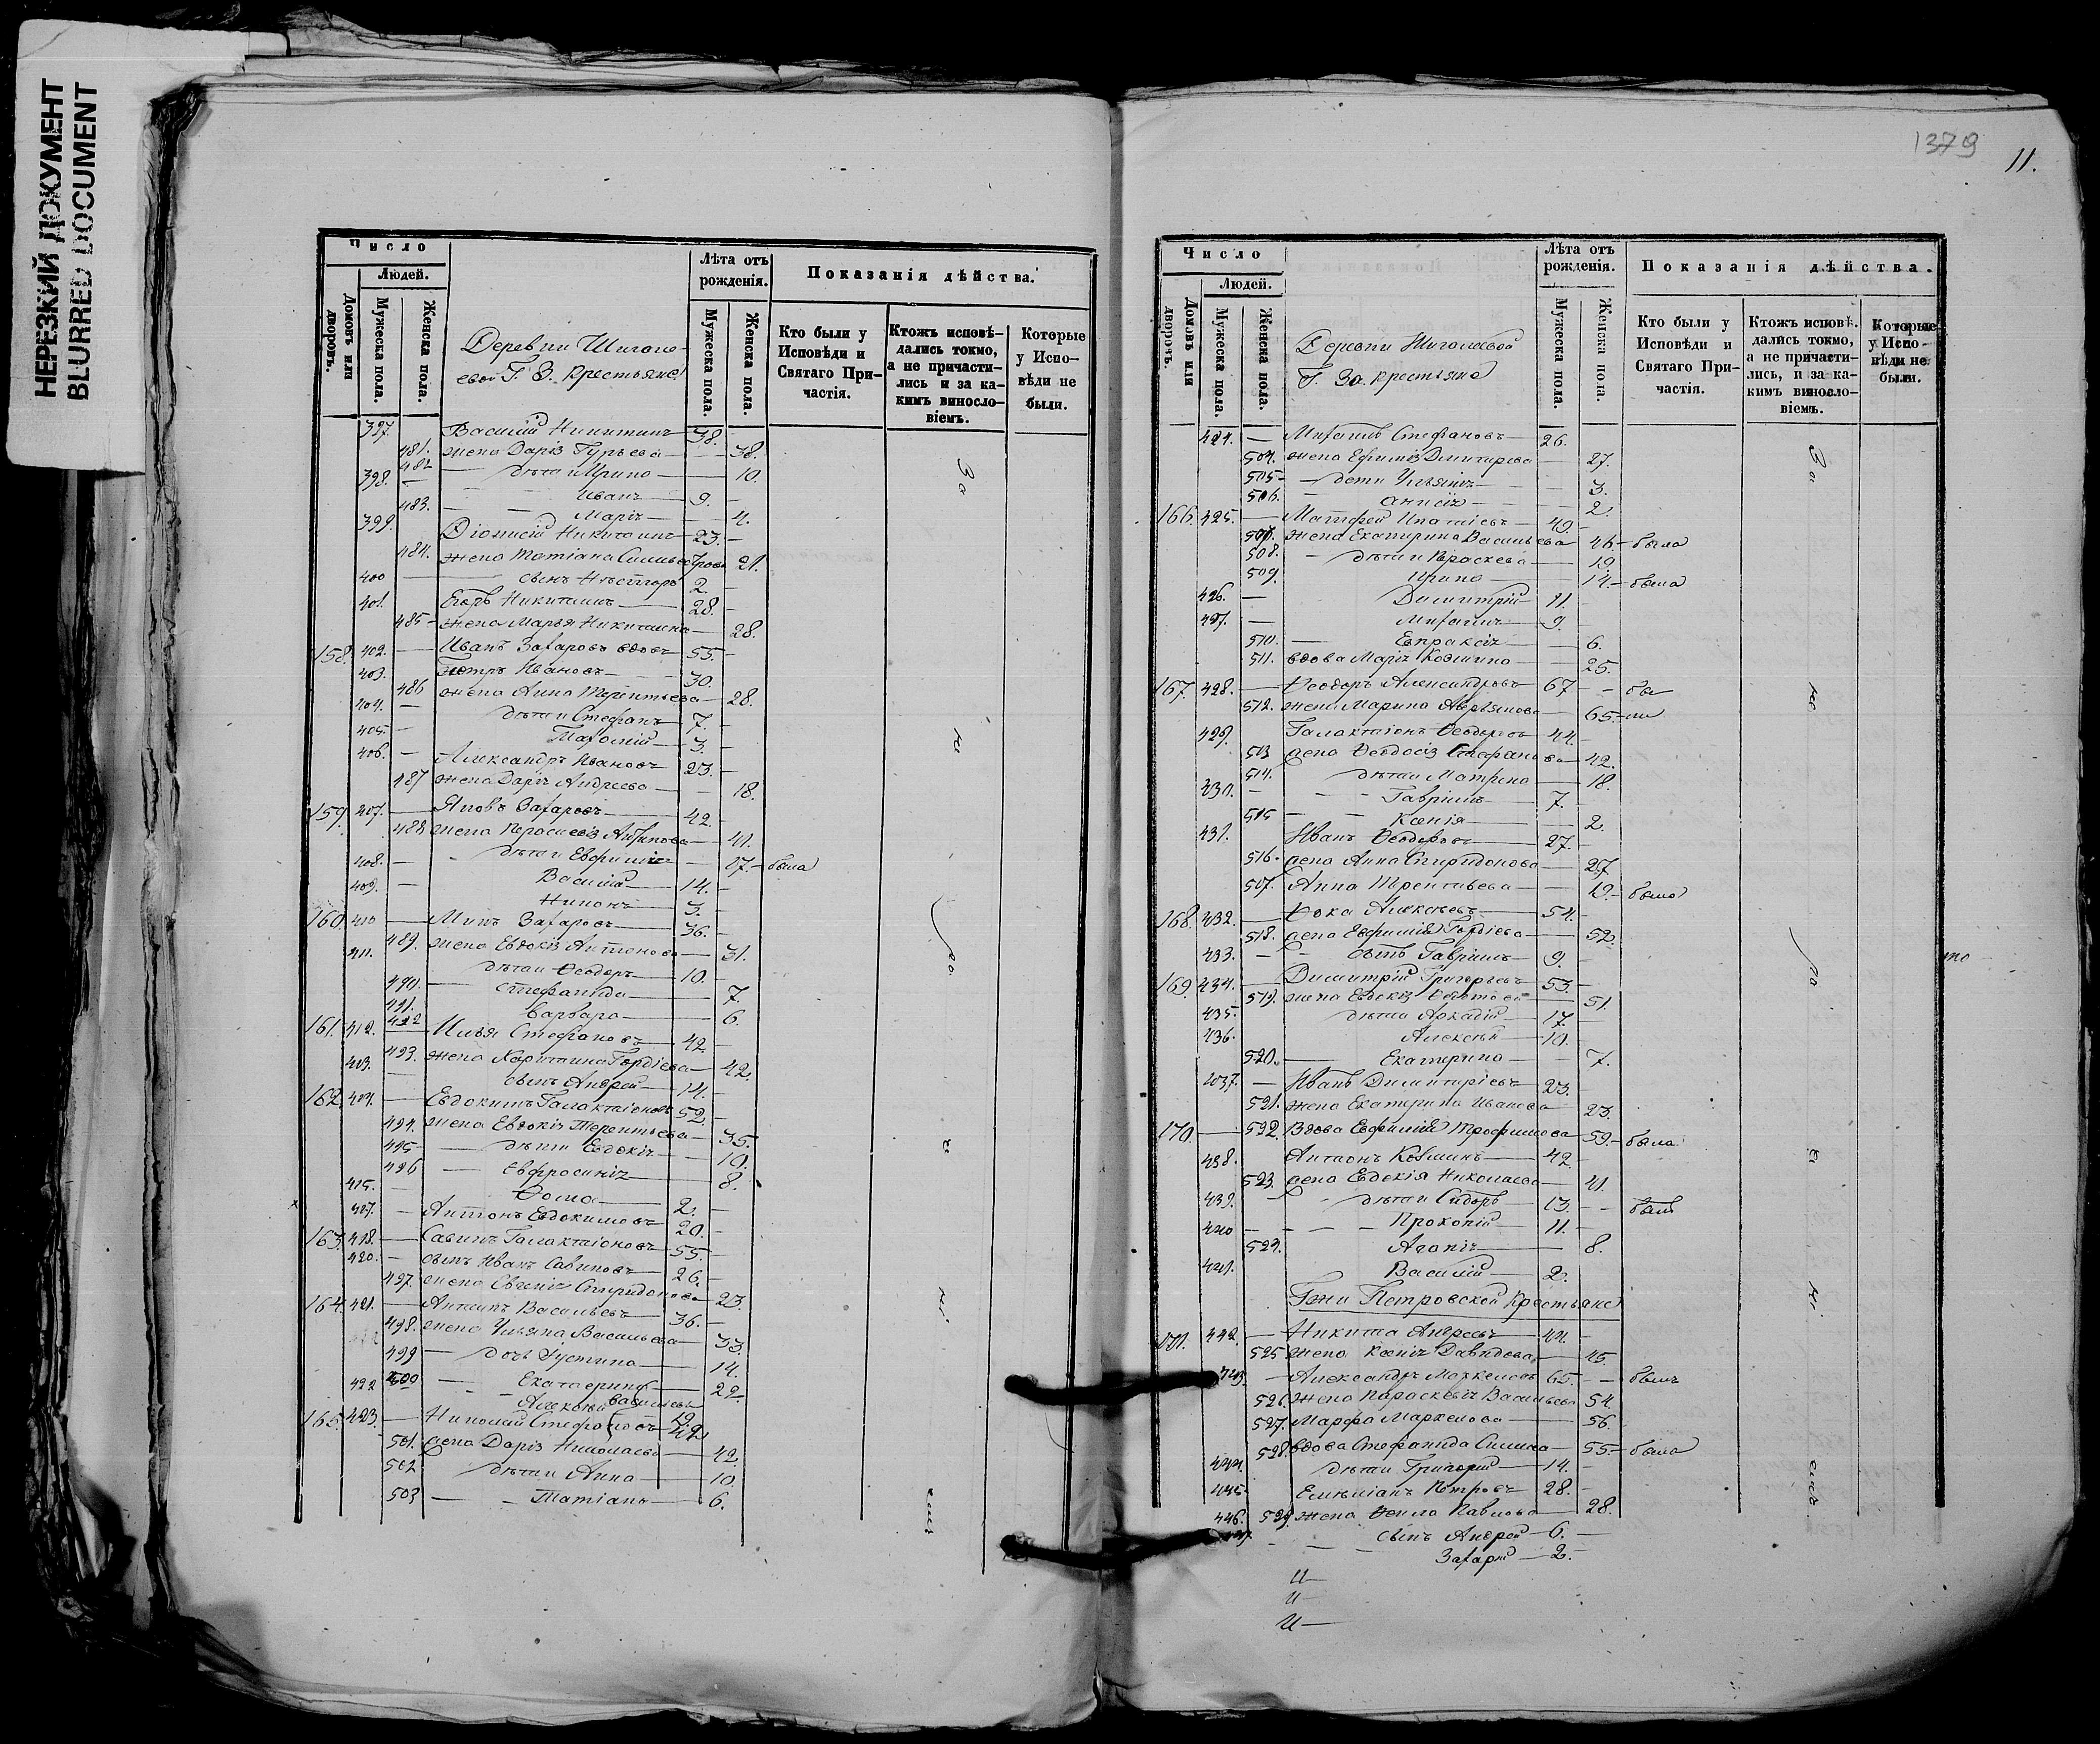 НЕРЕЗКИЙ ДОКУМЕНТ
BLURRED DOCUMENT
Число
Людей.
Домовъ или дворовъ.
Мужеска пола.
Женска пола.
Деревни Шиголе-
евой Г. З. крестьяне
Лѣта отъ рожденія.
Мужеска пола.
Женска пола.
Показанія дѣйства.
Кто были у Исповѣди и Святаго При-частія.
Ктожъ исповѣ-дались токмо, а не причасти-лись и за ка-кимъ винословіемъ.
Которые у Испо-вѣди не были.
397. Василій Никитинъ 38.
481. жена Дарія Гурьева 38.
482 дѣти Ирина 10.
398. Иванъ 9.
483. Марія 4.
399. Діонисій Никитинъ 23.
484. жена Татіана Сильвестрова 21.
400 сынъ Несторъ 2.
401. Егоръ Никитинъ 28.
485 жена Марья Никитина 28.
158. 402. Иванъ Захаровъ вдовъ 55.
403. Петръ Ивановъ 30.
486 жена Анна Терентьева 28.
404. дѣти Стефанъ 7.
405. 3.
406. Александръ Ивановъ 23.
487 жена Дарія Андреева 18.
159. 407. Яковъ Захаровъ 42.
488 жена Параскевія 41.
дѣти Евфимія 17. была
408. Василій 14.
409. Никонъ 3.
160. 410 Минъ Захаровъ 36.
489. жена Евдокія Антонова 31.
411. дѣти Ѳеодоръ 10.
490. Стефанида 7.
491. Варвара 6.
161. 412. 492 Илья Стефановъ 42
493. жена Харитина Гордіева 42.
413. сынъ Андрей 14.
162. 414. Евдокимъ Галактіоновъ 52.
494. жена Евдокія Терентьева 35.
495 дѣти Евдокія 10.
496 Евфросинія 8.
415. Ѳома 2.
417. Антонъ Евдокимовъ 20.
163. 418. Савинъ Галактіоновъ 55
420. сынъ Иванъ Савиновъ 26.
497. жена Евгенія Спиридонова 23.
164. 421. Антипъ Васильевъ 36.
498. жена Ульяна Васильева 33.
499 дочь Устина 14.
500 Екатерина 22.
422 Алексѣй Васильевъ 19.
165. 423. Николай Стефановъ 42
501. жена Дарія Николаева 42.
502 дѣти Анна 10.
503 Татіана 6.
За
не
ра
че
ні
емъ
1379
11.
Число
Людей.
Домовъ или дворовъ.
Мужеска пола.
Женска пола.
Деревни Шиголевой
Г. За. крестьяне
Лѣта отъ рожденія.
Мужеска пола.
Женска пола.
Показанія дѣйства.
Кто были у Исповѣди и Святаго При-частія.
Ктожъ исповѣ-дались токмо, а не причасти-лись, и за ка-кимъ винословіемъ.
Которые у Испо-вѣди не были.
424. Михаилъ Стефановъ 26.
504. жена Ефимія Димитріева 27.
505 дети Ульянія 3.
506. Анисія 2.
166. 425. Матфей Ипатіевъ 49
507. жена Екатерина Васильева 46. была
508. дѣти Параскева 19.
509. Ирина 14. была
426. Димитрій 11.
427. Михаилъ 9.
510. Евпраксія 6.
511. вдова Марія Козмина 25.
167. 428. Ѳеодоръ Александровъ 67 бы
512. жена Марина Аверьянова 65. ли
429. Галактіонъ Ѳеодоровъ 44.
513 жена Ѳеодосія Стефанова 42.
514. дѣти Матрена 18.
430. Гавріилъ 7.
515 Ксенія 2.
431. Иванъ Ѳеодоровъ 27.
516. жена Анна Спиридонова 27
507. Анна Терентьева 19. была
168. 432. Ѳока Алексѣевъ 54.
518. жена Евфимія Гордіева 52.
433. сынъ Гавріилъ 9.
169. 434. Димитрій Григорьевъ 53.
519. жена Евдокія 51.
435. дѣти Аркадій 17.
436. Алексѣй 10.
520. Екатерина 7.
437. Иванъ Димитріевъ 23.
521. жена Екатерина Иванова 23.
170 522. Вдова Евфимія Трофимова 59. была
438. Антонъ Козминъ 42.
523. жена Евдокія Николаева 41.
439. дѣти Сидоръ 13. былъ
440 Прокопій 11.
524. Агапія 8.
441. Василій 2.
Гжи Петровской крестьяне
171. 442. Никита Андреевъ 44.
525 жена Ксенія Давидова 45.
443 Александръ Маркеловъ 65. былъ
526. жена Параскевія Васильева 54.
527. Марфа Маркелова 56.
528. вдова Стефанида Силина 55. была
444. дѣти Григорій 14.
445 Емельянъ Петровъ 28.
446. 529. жена Ѳекла Павлова 28.
сынъ Андрей 6.
Захарій 2.
За
не
ра
че
ні
емъ
то